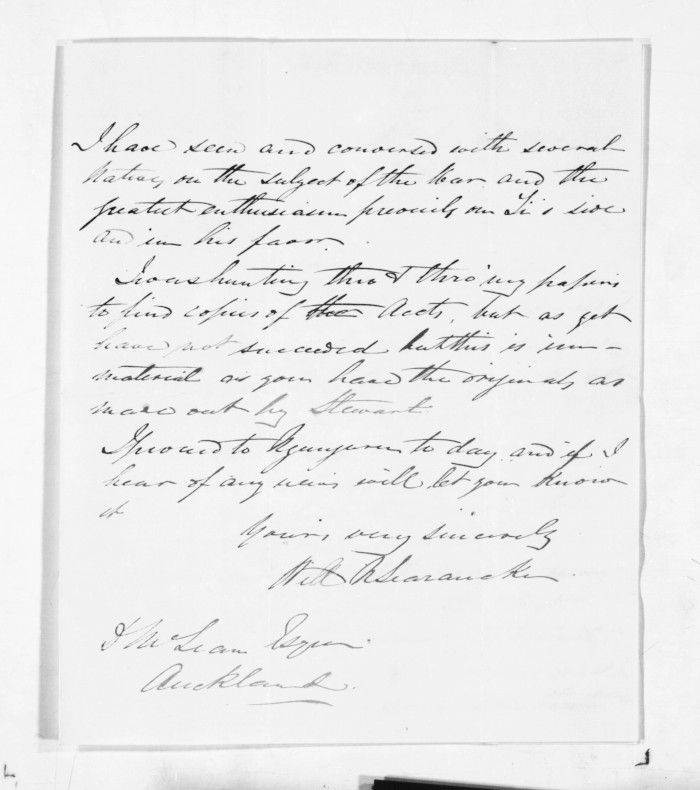 I have seen and conversed with several
Natives on the subject of the War and the
greatest enthusiasm prevails on Ti's side
and in his favor.
I was hunting thro & thro' my papers
to find copies of the Accts, but as yet
have not succeeded but this is im-
material as you have the originals as
made out by Stewart.
I proceed to to day and if I
hear of any news will let you know
it
Yours very sincerely
Will N Searancke
D McLean Esqre.
Auckland.